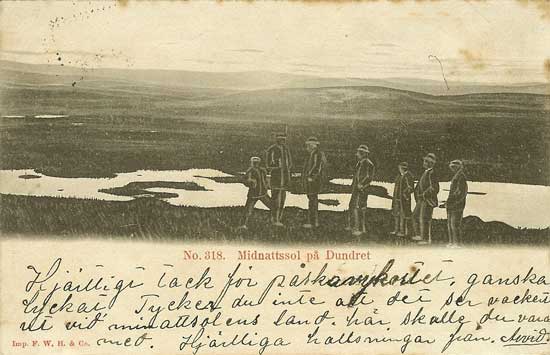 No. 318. Midnattssol på Dundret
Hjärtligt tack för påskavykortet, ganska
lyckat. Tycker du inte att det ser vackert
ut vid minattsolens land, här skulle du vara
Imp. F. W. H. & Co.
met. Hjärtliga hälsningar från. Arvid.